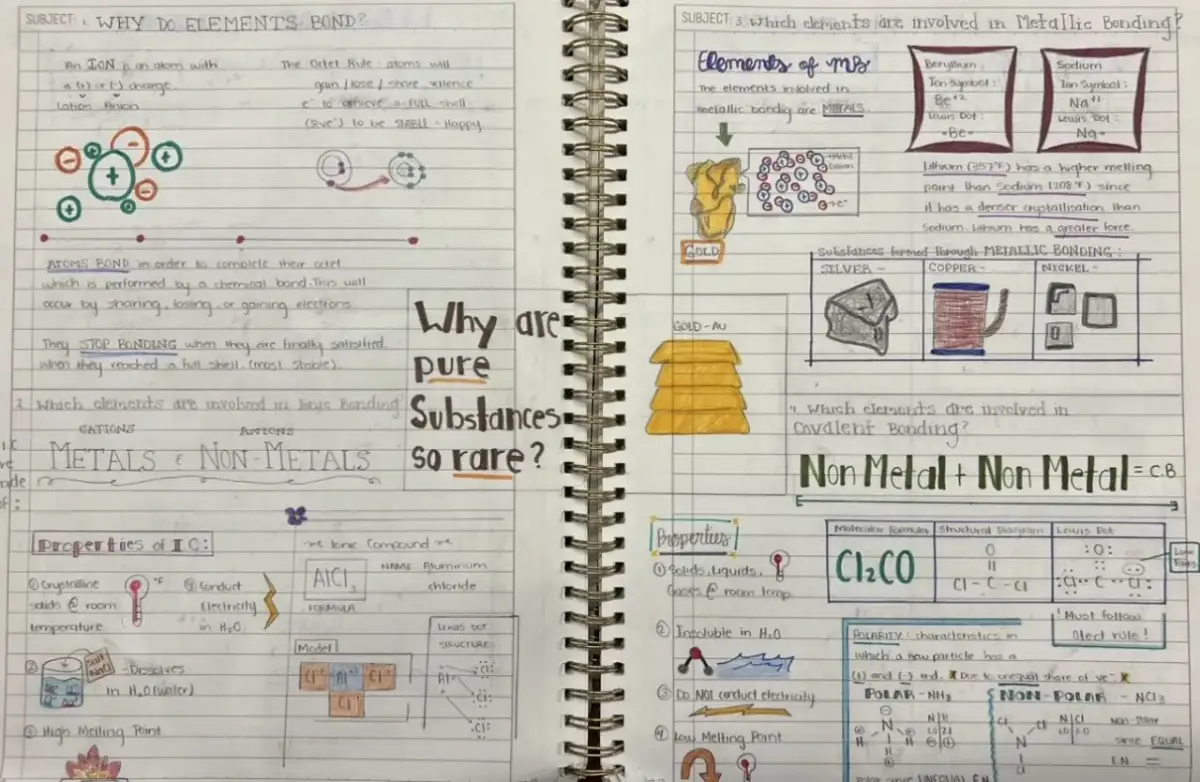 SUBJECT: 1. WHY DO ELEMENTS BOND?
An ION is an atom with
a (+) or (-) charge.
Cation Anion
The Octet Rule: atoms will
gain/lose/share valence
e⁻ to achieve a FULL shell
(8ve⁻) to be STABLE - Happy
ATOMS BOND in order to complete their octet
which is performed by a chemical bond. This will
occur by sharing, losing, or gaining electrons
They STOP BONDING when they are finally satisfied
when they reached a full shell. (most stable).
2. Which elements are involved in Ionic Bonding
CATIONS ANIONS
METALS & NON-METALS
Why are
pure
Substances
so rare?
Properties of I C:
① Crystalline
solids @ room
temperature
°F
④ Conduct
Electricity
in H₂O
② Dissolves
in H₂O (water)
③ High Melting Point
Ionic Compound
AlCl₃
FORMULA
NAME Aluminum
chloride
Model
Cl⁻ Al⁺³ Cl⁻
Cl⁻
LEWIS DOT
STRUCTURE:
Al
Cl
Cl
Cl
SUBJECT: 3. Which elements are involved in Metallic Bonding?
Elements of MB
The elements involved in
metallic bondig are METALS.
GOLD
Beryllium
Ion Symbol:
Be⁺²
Lewis Dot:
•Be•
Sodium
Ion Symbol:
Na⁺¹
Lewis Dot:
Na•
Lithium (357°F) has a higher melting
point than Sodium (208°F) since
it has a denser crystallisation than
Sodium. Lithium has a greater force.
Substances formed through METALLIC BONDING:
SILVER - COPPER - NICKEL -
GOLD - AU
4. Which elements are involved in
Covalent Bonding?
Non Metal + Non Metal = CB
Properties
① Solids, Liquids,
Gases @ room temp
② Insoluble in H₂O
③ Do NOT conduct electricity
④ Low Melting Point
Molecular Formula Structural Diagram Lewis Dot
Cl₂CO
O
Cl - C - Cl
:O:
:Cl C Cl:
Lone
Pairs
! Must follow
Octect rule!
POLARITY: characteristics in
which a
particle has a
(+) and (-) end. Due to unequal share of ve⁻
POLAR - NH₃
N
H H
H
NON-POLAR - NCl₃
Cl Cl
N
Cl
Non-Polar
since EQUAL
EN